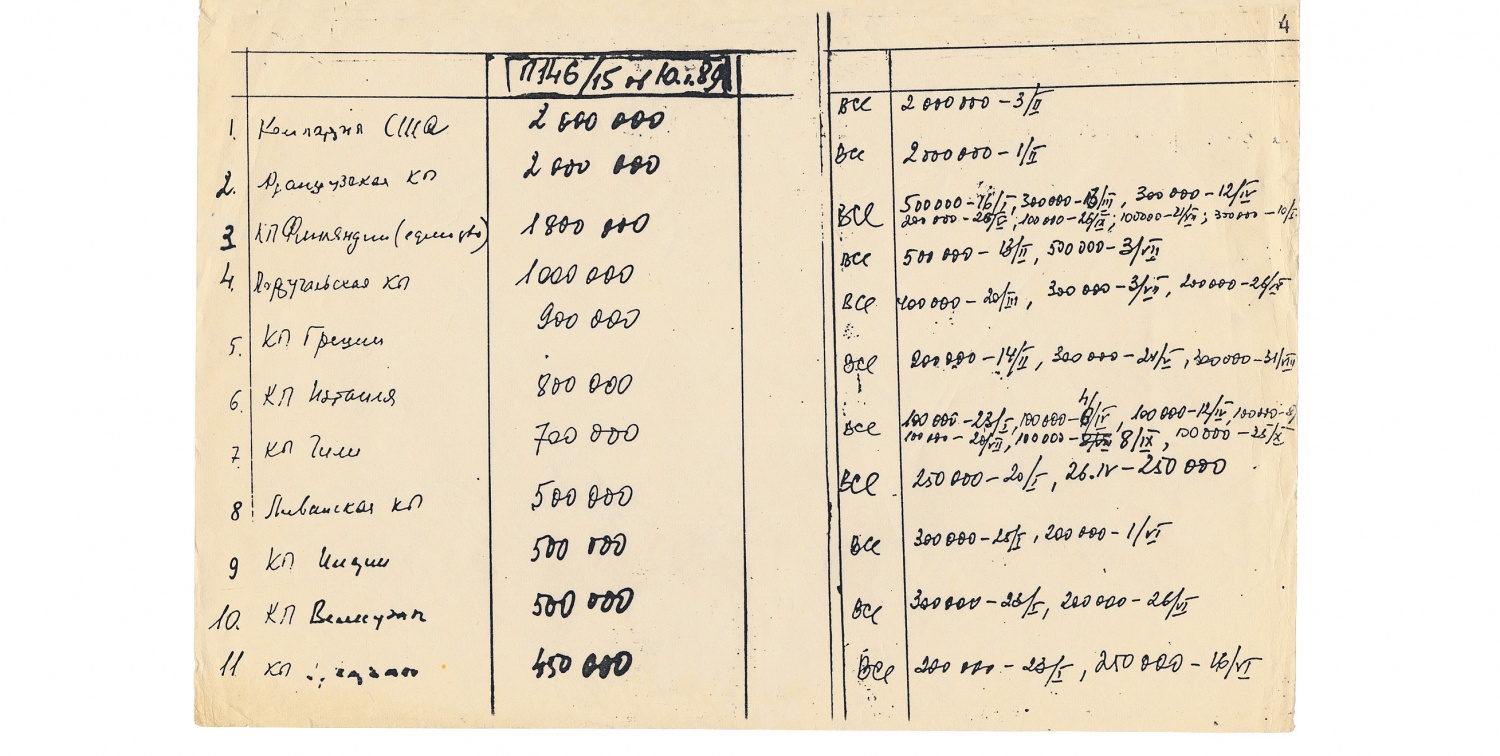 4
П146/15 от 10.1.89
1. Компартия США 2 000 000 все 2 000 000 – 3/II
2. Французская КП 2 000 000 все 2 000 000 – 1/II
3 КП Финляндии (единство) 1 800 000 все 500 000 – 16/I, 300 000 – /III, 300 000 – 12/IV
200 000 – 100 000 – 100 000 – 300 000 –
4. Португальская КП 1000 000 все 500 000 – 13/II, 500 000 – 3/VII
5. КП Греции 900 000 все 400 000 – 20/III, 300 000 – 3/VII, 200 000 –
6. КП Израиля 800 000 все 200 000 – 14/II, 300 000 – 300 000 – 31/VIII
7 КП Чили 700 000 все 100 000 – 23/I, 100 000 – 4/IV, 100 000 – 12/IV, 100 000 –
100 000 – 20/VII, 100 000 – 8/IX, 100 000 –
8 Ливанская КП 500 000 все 250 000 – 20/I, 26.IV – 250 000
9 КП Индии 500 000 все 300 000 – 25/I, 200 000 – 1/VI
10. КП Венесуэлы 500 000 все 300 000 – 23/I, 200 000 – 26/VI
11 КП 450 000 все 200 000 – 23/I, 250 000 – 16/VI